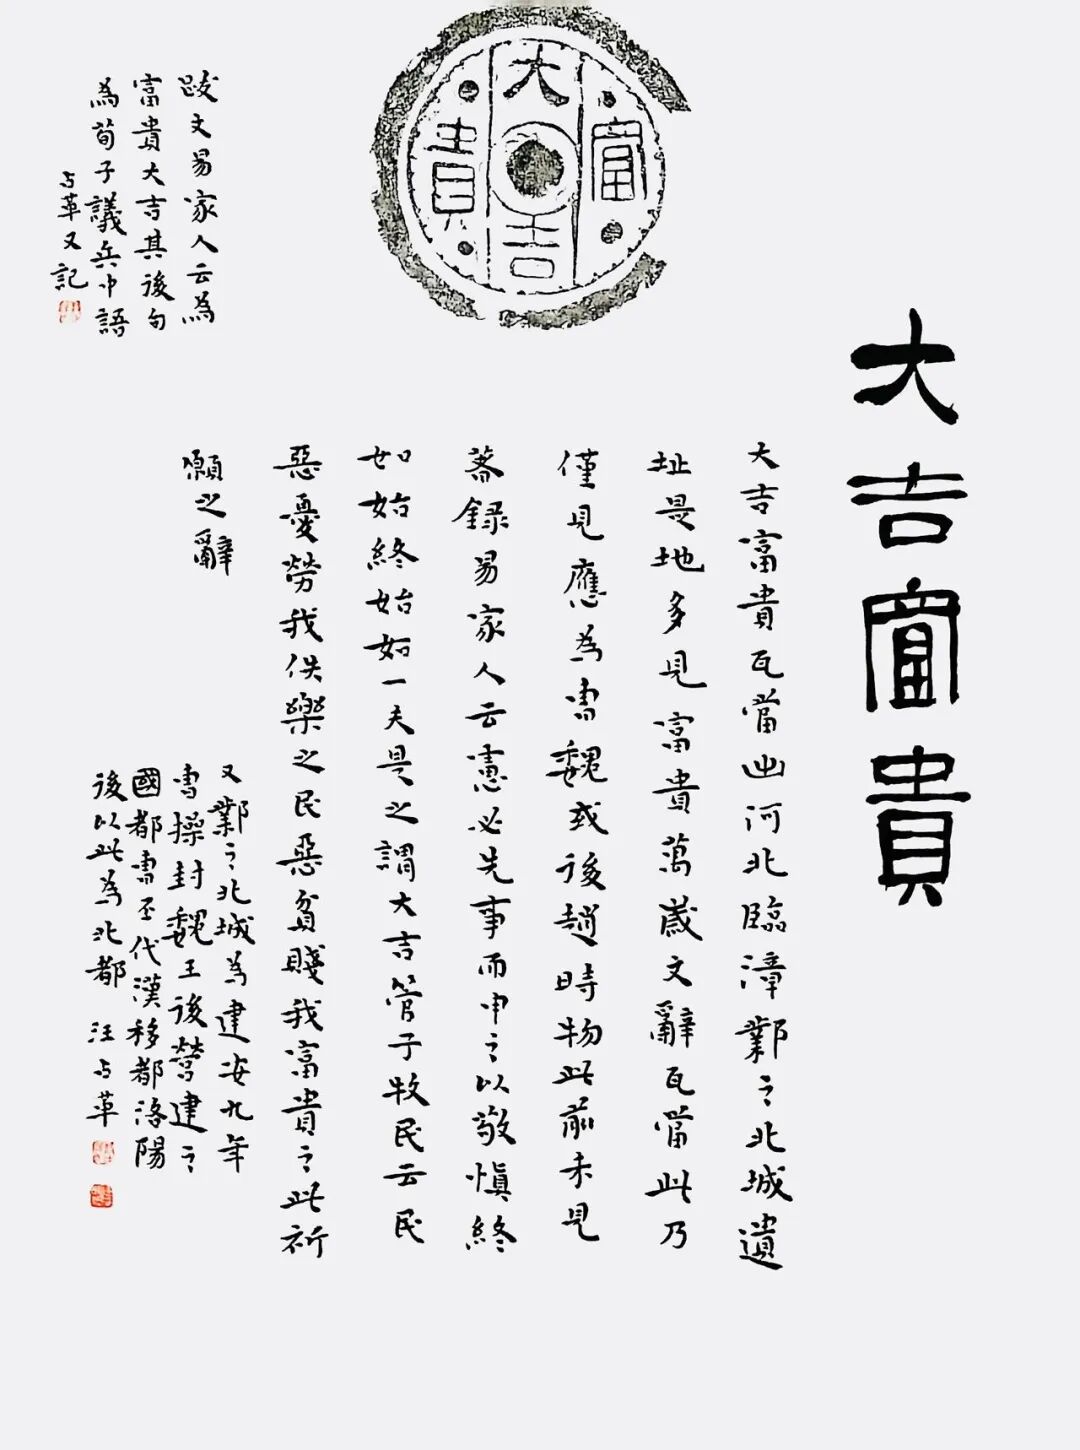 大吉富貴
大吉富貴
大吉富貴瓦當出河北臨漳鄴之北城遺
址是地多見富貴萬歲文辭瓦當此乃
僅見應為曹魏或後趙時物此前未見
著錄易家人云慮必先事而申之以敬慎終
如始終始如一夫是之謂大吉管子牧民云民
惡憂勞我佚樂之民惡貧賤我富貴之此祈
願之辭
又鄴之北城為建安九年
曹操封魏王後營建之
國都曹丕代漢移都洛陽
後以此為北都 汪与革
跋文易家人云為
富貴大吉其後句
為荀子議兵中語
与革又記